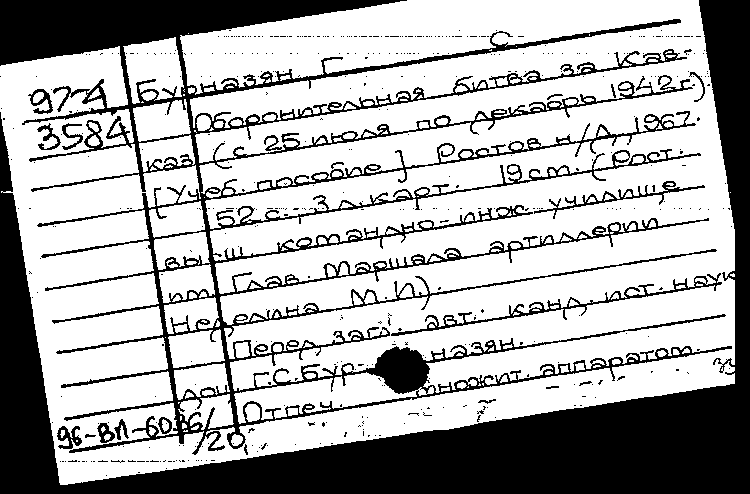 974 Бурназян, Г. С
3584 Оборонительная битва за Кав-
каз (с 25 июля по декабрь 1942 г.)
[Учеб. пособие]. Ростов н/Д, 1967.
52 с., 3 л. карт. 19 см. (Рост.
высш. командно-инж. училище
им. Глав. Маршала артиллерии
Неделина М.И.).
Перед загл. авт.: канд. ист. наук
доц. Г.С. Бур-назян.
Отпеч. множит. аппаратом.
96-ВЛ-6036/20